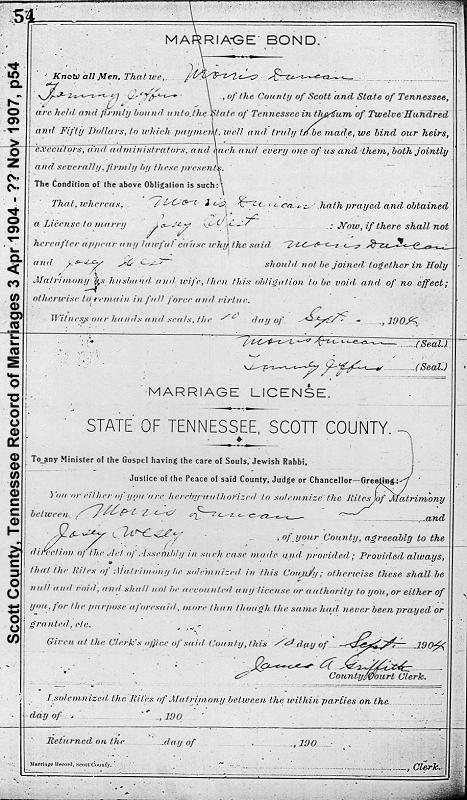 54
MARRIAGE BOND.
Know all Men, That we, Morris Duncan
Tommy Jeffers, of the County of Scott and State of Tennessee,
are held and firmly bound unto the State of Tennessee in the sum of Twelve Hundred
and Fifty Dollars, to which payment, well and truly to be made, we bind our heirs,
executors, and administrators, and each and every one of us and them, both jointly
and severally, firmly by these presents.
The Condition of the above Obligation is such:
That, whereas, Morris Duncan hath prayed and obtained
a License to marry Josey West : Now, if there shall not
hereafter appear any lawful cause why the said Morris Duncan
and Josey West should not be joined together in Holy
Matrimony as husband and wife, then this obligation to be void and of no effect;
otherwise to remain in full force and virtue.
Witness our hands and seals, the 10 day of Sept. , 1904
Morris Duncan (Seal.)
Tommy Jeffers (Seal.)
MARRIAGE LICENSE.
STATE OF TENNESSEE, SCOTT COUNTY.
To any Minister of the Gospel having the care of Souls, Jewish Rabbi,
Justice of the Peace of said County, Judge or Chancellor—Greeting:
You or either of you are hereby authorized to solemnize the Rites of Matrimony
between Morris Duncan and
Josey Wesley, of your County, agreeably to the
direction of the Act of Assembly in such case made and provided; Provided always,
that the Rites of Matrimony be solemnized in this County; otherwise these shall be
null and void, and shall not be accounted any license or authority to you, or either of
you, for the purpose aforesaid, more than though the same had never been prayed or
granted, etc.
Given at the Clerk's office of said County, this 10 day of Sept. 1904
James A Griffith
County Court Clerk.
I solemnized the Rites of Matrimony between the within parties on the
day of , 190
Returned on the day of , 190
Marriage Record, Scott County. , Clerk.
Scott County, Tennessee Record of Marriages 3 Apr 1904 - ?? Nov 1907, p54